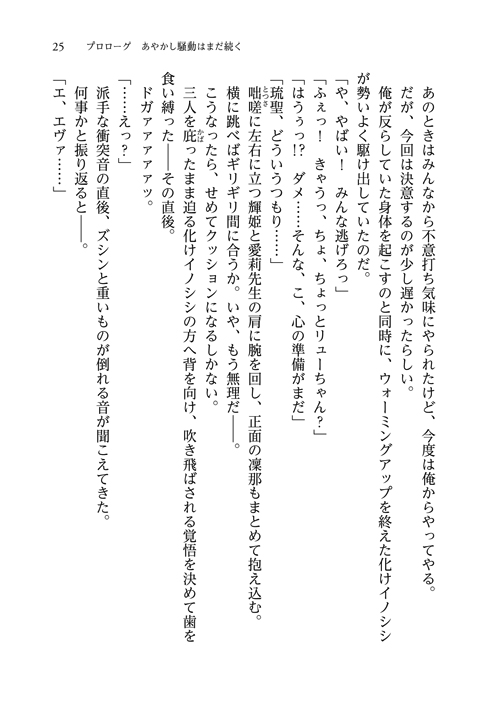 25　プロローグ　あやかし騒動はまだ続く
あのときはみんなから不意打ち気味にやられたけど、今度は俺からやってやる。
だが、今回は決意するのが少し遅かったらしい。
俺が反らしていた身体を起こすのと同時に、ウォーミングアップを終えた化けイノシシ
が勢いよく駆け出していたのだ。
「や、やばい！　みんな逃げろっ」
「ふぇっ！　きゃうっ、ちょ、ちょっとリューちゃん？」
「はうぅっ!?　ダメ……そんな、こ、心の準備がまだ」
「琉聖、どういうつもり……」
咄嗟に左右に立つ輝姫と愛莉先生の肩に腕を回し、正面の凜那もまとめて抱え込む。
とっさ
横に跳べばギリギリ間に合うか。いや、もう無理だ――。
こうなったら、せめてクッションになるしかない。
三人を庇ったまま迫る化けイノシシの方へ背を向け、吹き飛ばされる覚悟を決めて歯を
かば
食い縛った――その直後。
ドガァァァァァッ。
「……えっ？」
派手な衝突音の直後、ズシンと重いものが倒れる音が聞こえてきた。
何事かと振り返ると――。
「エ、エヴァ……」